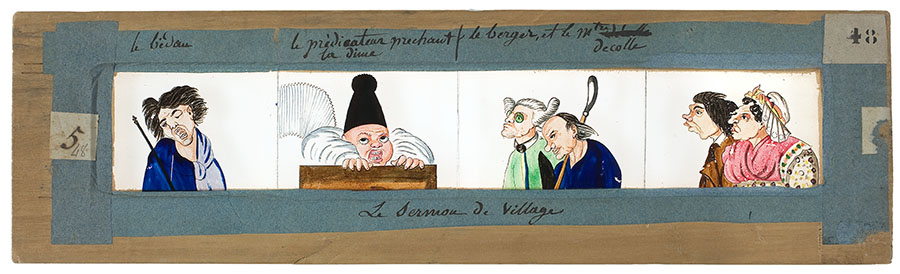 le bédau
le prédicateur prechant / le berger, et le mtre
la dime
decolle
48
5
48
Le Sermon de Village